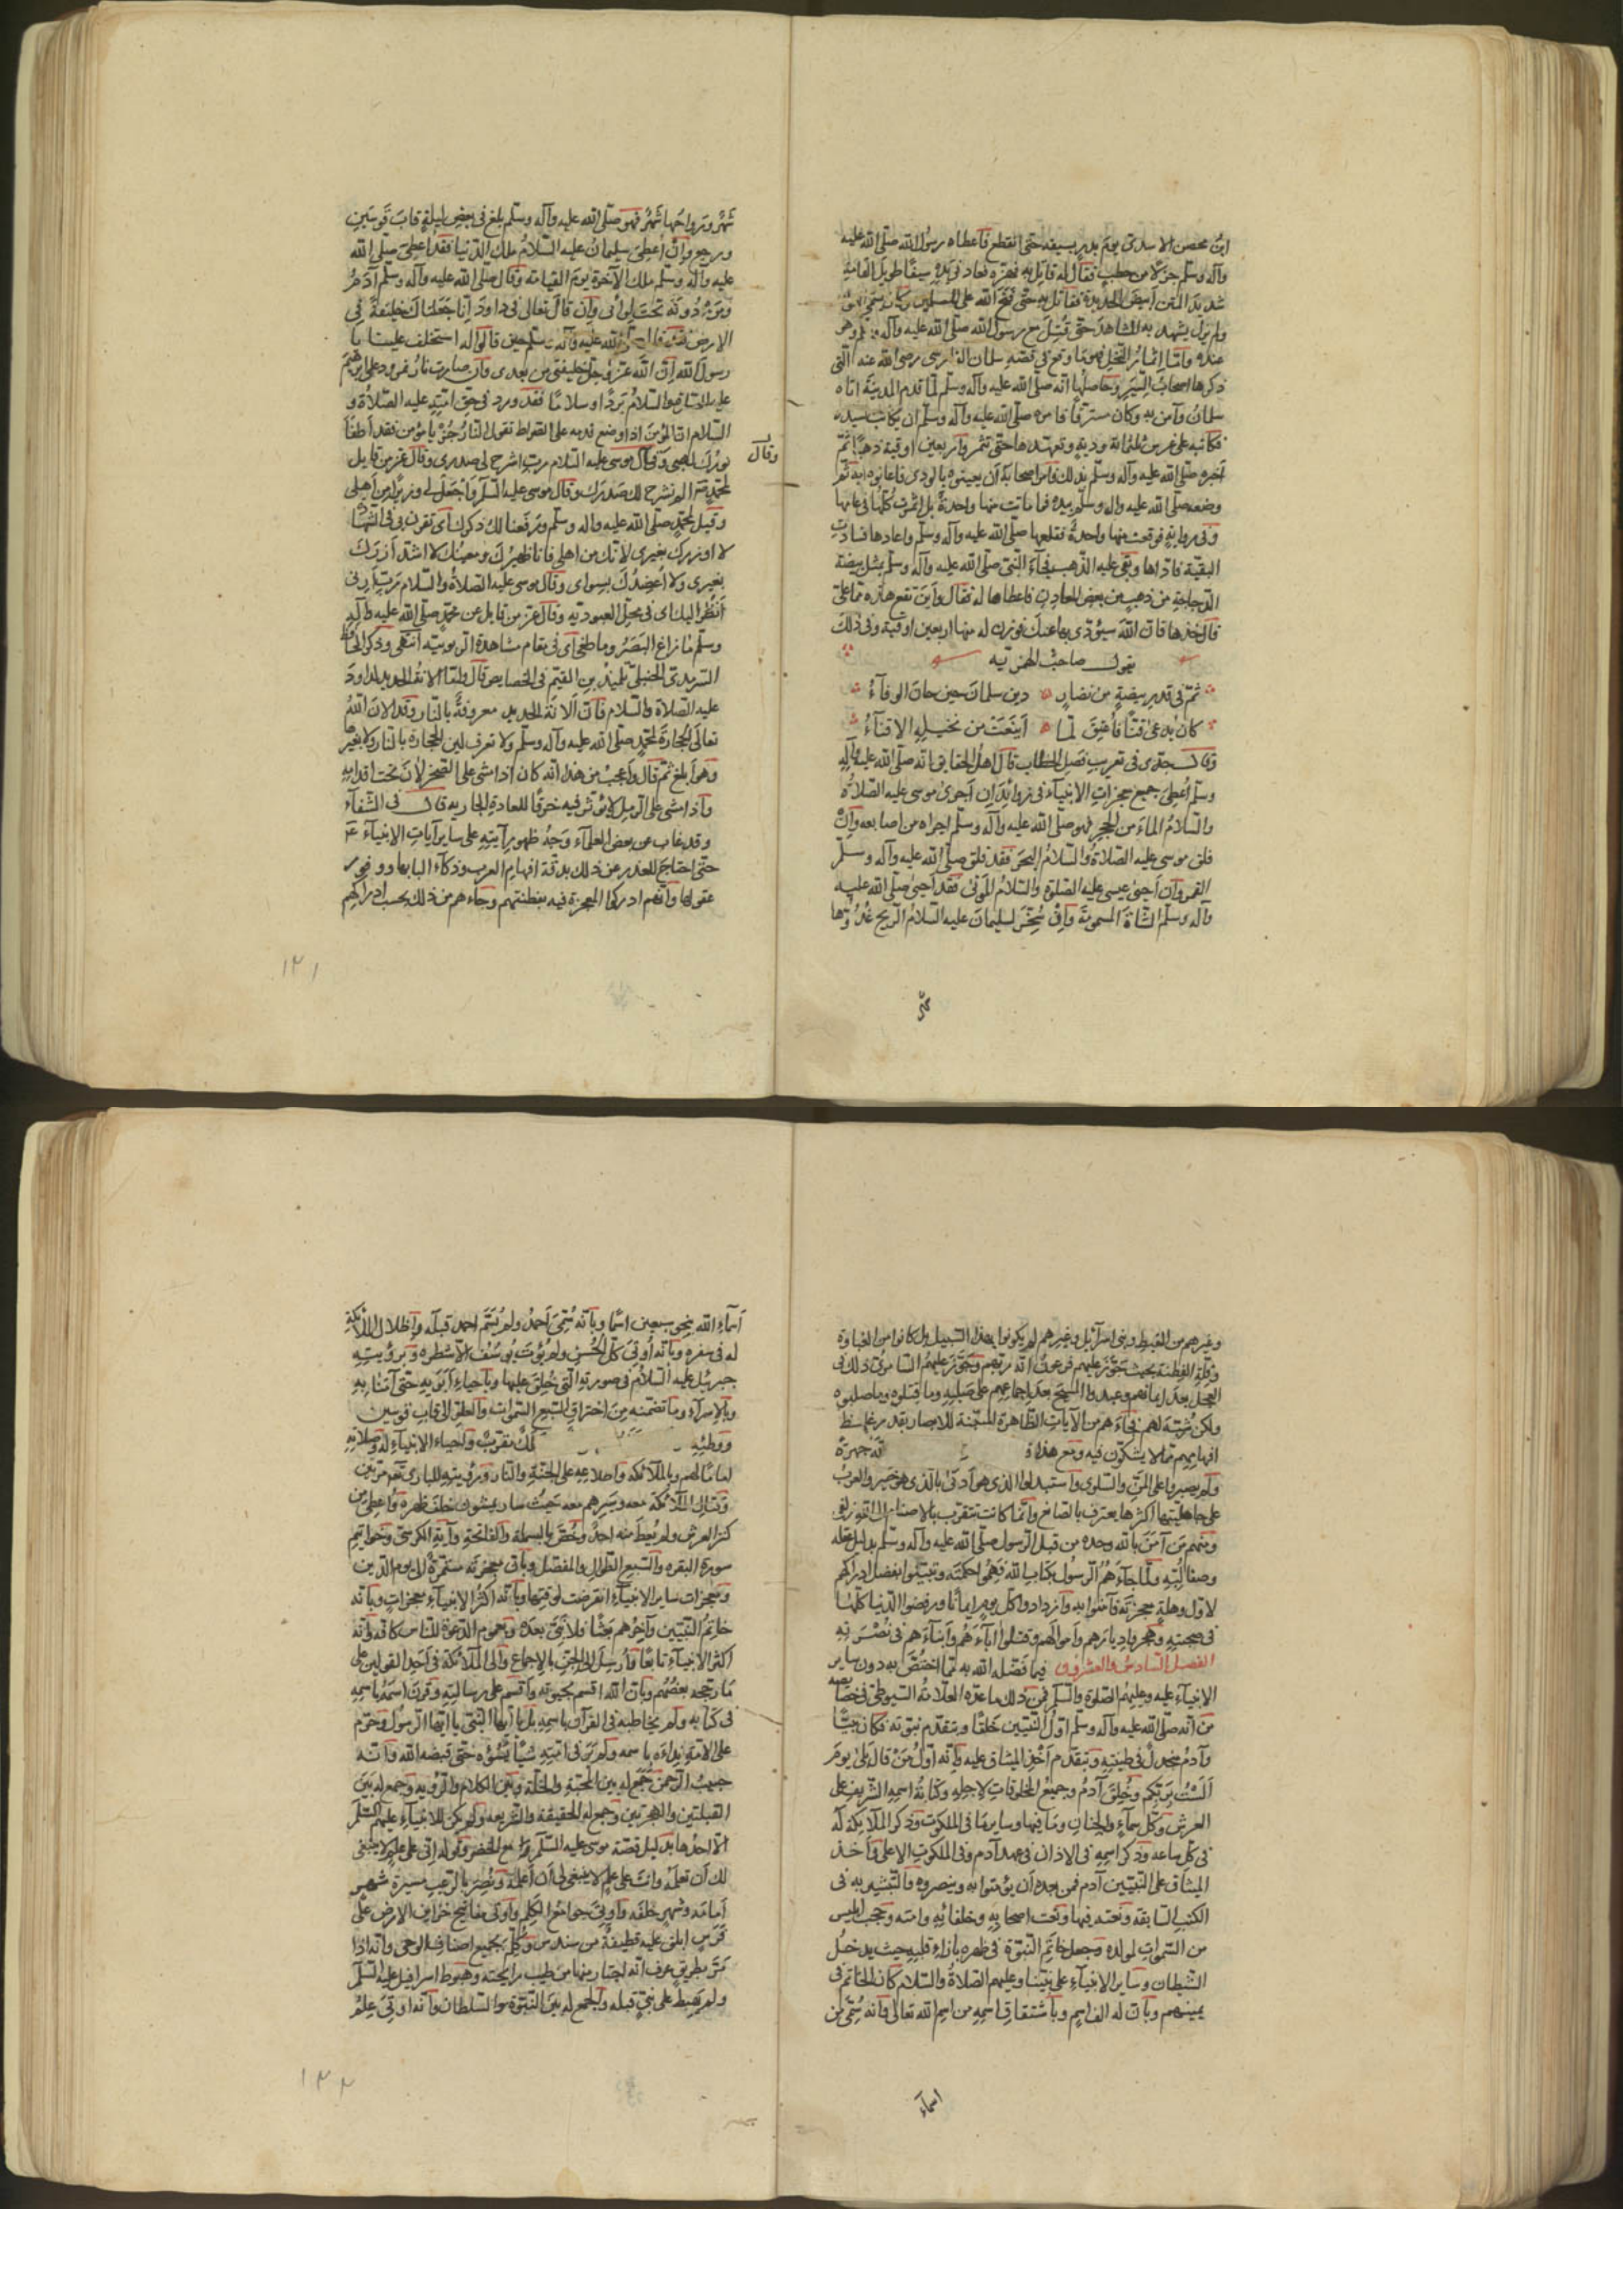 ابن محصن الاسدى يوم بدر بسيفه حتى انقطع فاعطاه رسول الله صلى الله عليه
وآله وسلم جزلا من حطب فقال له قاتل به فهزه فعاد فى يده سيفا طويل القامة
شديد المتن أبيض الحديدة فقاتل به حتى فتح الله على المسلمين وكان يسمى العون
ولم يزل يشهد به المشاهد حتى قتل مع رسول الله صلى الله عليه وآله وسلم وهو
عنده واما اثمار النخل فهو ما وقع فى قصة سلمان الفارسى رضى الله عنه التى
ذكرها اصحاب السير وحاصلها انه صلى الله عليه وآله وسلم لما قدم المدينة اتاه
سلمان وآمن به وكان مسترقا فامره صلى الله عليه وآله وسلم ان يكاتب سيده
فكاتبه على غرس ثلثمائة ودية وتعهدها حتى تثمر واربعين اوقية ذهبا ثم
أخبره صلى الله عليه وآله وسلم بذلك فامر اصحابه أن يعينوه بالودى فاعانوه به ثم
وضعه صلى الله عليه واله وسلم بيده فما ماتت منها واحدة بل اثمرت كلها فى عامها
وفى رواية فوقعت منها واحدة فقلعها صلى الله عليه وآله وسلم واعادها فسادت
البقية فاداها وبقى عليه الذهب فجآء النبى صلى الله عليه وآله وسلم بمثل بيضة
الدجاجة من ذهب من بعض المعادن فاعطاها له فقال وأين تقع هذه مما على
قال خذها فان الله سيؤدى بها عنك فوزن له منها اربعين اوقية وفى ذلك
يقول صاحب الهمزيه
ثم فى قدر بيضة من نضار دين سلمان حين حان الوفآء
كان يدعى قنا فأعتق لما أينعت من نخيله الاقنآء
وقال جدى فى تعريب فصل الخطاب قال اهل الحقايق انه صلى الله عليه وآله
وسلم أعطى جميع معجزات الانبيآء فى زوائد إن أجرى موسى عليه الصلاة
والسلام المآء من الحجر فهو صلى الله عليه وآله وسلم اجراه من اصابعه وان
فلق موسى عليه الصلاة والسلام البحر فقد فلق صلى الله عليه وآله وسلم
القمر وان أحيى عيسى عليه الصلوة والسلام الموتى فقد أحيى صلى الله عليه
وآله وسلم الشاة المسمومة وان سخر لسليمان عليه السلام الريح غدوها
شهر ورواحها شهر فهو صلى الله عليه وآله وسلم بلغ فى بعض ليلة قاب قوسين
ورجع وان أعطى سليمان عليه السلام ملك الدنيا فقد اعطى صلى الله
عليه وآله وسلم ملك الآخرة يوم القيامة وقال صلى الله عليه وآله وسلم آدم
ومن دونه تحت لوائى وإن قال تعالى فى داود إنا جعلناك خليفة فى
الارض فقد قال صلى الله عليه وآله وسلم حين قالوا له استخلف علينا يا
رسول الله ان الله عز وجل خليفتى من بعدى وان صارت نار نمرود على ابرهيم
عليه الصلوة والسلام بردا وسلاما فقد ورد فى حق امته عليه الصلاة و
السلام ان المؤمن اذا وضع قدمه على الصراط تقول النار جز يا مؤمن فقد أطفأ
نورك لهبى وقال موسى عليه السلام رب اشرح لى صدرى وقال عز من قايل
وقال
لمحمد الم نشرح لك صدرك وقال موسى عليه السلم واجعل لى وزيرا من أهلى
وقيل لمحمد صلى الله عليه واله وسلم ورفعنا لك ذكرك أى تقرن بى فى الشهاد
لا اوزرك بغيرى لأنك من اهلى فانا ظهيرك ومعينك لا اشد أزرك
بغيرى ولا أعضدك بسواى وقال موسى عليه الصلاة والسلام رب أرنى
أنظر اليك اى فى محل العبودية وقال عز من قايل عن محمد صلى الله عليه وآله
وسلم ما زاغ البصر وما طغى اى فى مقام مشاهدة الربوبية انتهى وذكر الحافظ
السرمدى الحنبلى تلميذ بن القيم فى الخصايص قال ولقاء الانة الحديد لداود
عليه الصلاة والسلام فان الانة الحديد معروفة بالنار وقد الان الله
تعالى الحجارة لمحمد صلى الله عليه وآله وسلم ولا تعرف لين الحجارة بالنار ولا بغيرها
وهو أبلغ ثم قال واعجب من هذا انه كان اذا مشى على الصخر لان تحت اقدامه
واذا مشى على الرمل لا يؤثر فيه خرقا للعادة الجارية قال فى الشفآء
وقد غاب عن بعض العلمآء وجه ظهور آيته على ساير آيات الانبيآء
حتى احتاج للعذر عن ذلك بدقة افهام العرب وذكآء البابها ووفور
عقولها وانهم ادركوا المعجزة فيه بفطنتهم وجاءهم من ذلك بحسب ادراكهم
١٢١
وغيرهم من القبط وبنى اسرآئيل وغيرهم لم يكونوا بهذا السبيل بل كانوا من الغباوة
وقلة الفطنة بحيث جوز عليهم فرعون انه ربهم وجوز عليهم السامرى ذلك فى
العجل بعد ايمانهم وعبدوا المسيح بعد اجماعهم على صلبه وما قتلوه وما صلبوه
ولكن شبه لهم فجآءهم من الآيات الظاهرة المبينة للابصار بقدر غلظ
افهامهم ما لا يشكون فيه ومع هذا جهرة
ولم يصبروا على المن والسلوى واستبدلوا الذى هو أدنى بالذى هو خير والعرب
على جاهليتها اكثرها يعترف بالصانع وانما كانت تتقرب بالاصنام الى الله زلفى
ومنهم من آمن بالله وحده من قبل الرسول صلى الله عليه وآله وسلم بدليل عقله
وصفا لبه ولما جآءهم الرسول بكتاب الله فهموا حكمته وتبينوا بفضل ادراكهم
لاول وهلة معجزته فآمنوا به وازدادوا كل يوم إيمانا ورفضوا الدنيا كلها
فى صحبته وهجروا ديارهم وأموالهم وقتلوا آبآءهم وأبنآءهم فى نصرته
الفصل السادس والعشرون فيما فضله الله به مما اختص به دون ساير
الانبيآء عليه وعليهم الصلوة والسلم فمن ذلك ما عده العلامة السيوطى فى خصايصه
من انه صلى الله عليه وآله وسلم اول النبيين خلقا وبتقدم نبوته فكان نبيا
وآدم منجدل فى طينته وبتقدم أخذ الميثاق عليه وانه أول من قال بلى يوم
ألست بربكم وخلق آدم وجميع المخلوقات لاجله وكتابة اسمه الشريف على
العرش وكل سمآء والجنان وما فيها وساير ما فى الملكوت وذكر الملآئكة له
فى كل ساعة وذكر اسمه فى الاذان فى عهد آدم وفى الملكوت الاعلى واخذ
الميثاق على النبيين آدم فمن بعده أن يؤمنوا به وينصروه والتبشير به فى
الكتب السابقة ونعته فيها ونعت اصحابه وخلفائه وامته وحجب ابليس
من السموات لمولده وجعل خاتم النبوة فى ظهره بازاء قلبه حيث يدخل
الشيطان وساير الانبيآء على نبينا وعليهم الصلاة والسلام كان الخاتم فى
يمينهم وبان له الف اسم وباشتقاق اسمه من اسم الله تعالى وانه سمى من
اسمآء
أسمآء الله بنحو سبعين اسما وبانه سمى أحمد ولم يسم احمد قبله وإظلال الملآئكة
له فى سفره وبانه أوتى كل الحسن ولم يؤت يوسف الا شطره وبرؤيته
جبريل عليه السلام فى صورته التى خلق عليها وباحياء أبويه حتى آمنا به
وبالاسرآء وما تضمنه من اختراق السبع السموات والعلو الى قاب قوسين
ووطئه ملك مقرب ولحياء الانبيآء له وصلاته
اماما لهم وبالملآئكة واطلاعه على الجنة والنار ورؤيته للبارى تعم مرتين
وقتال الملآئكة معه وسيرهم معه حيث سار يمشون خلف ظهره وأعطى من
كنز العرش ولم يعط منه احد وخص بالبسملة والفاتحة وآية الكرسى وخواتيم
سورة البقرة والسبع الطوال والمفصل وبان معجزته مستمرة الى يوم الدين
ومعجزات ساير الانبيآء انقرضت لوقتها وبانه اكثر الانبيآء معجزات وبانه
خاتم النبيين وآخرهم بعثا فلا نبى بعده وبعموم الدعوة للناس كافة وانه
اكثر الانبيآء تابعا وأرسل الى الجن بالاجماع والى الملآئكة فى أحد القولين على
ما رجحه بعضهم وبان الله اقسم بحيوته وأقسم على رسالته وقرن اسمه باسمه
فى كتابه ولم يخاطبه فى القرآن باسمه بل يا أيها النبى يا ايها الرسول وحرم
على الامة نداءه باسمه ولم ير فى امته شيئا يسوءه حتى قبضه الله وانه
حبيب الرحمن جمع له بين المحبة والخلة وبين الكلام والرؤية وجمع له بين
القبلتين والهجرتين وجمع له الحقيقة والشريعة ولم يكن للانبيآء عليهم السلم
الا احدها بدليل قصة موسى عليه السلم مع الخضر وقوله انى على علم لا ينبغى
لك أن تعلمه وانت على علم لا ينبغى لى أن أعلمه ونصر بالرعب مسيرة شهر
أمامه وشهر خلفه وأوتى جوامع الكلم وأوتى مفاتيح خزاين الارض على
فرس ابلق عليه قطيفة من سندس وكلم بجميع اصناف الوحى وانه اذا
مر بطريق عرف انه اجتاز منها من طيب رايحته وهبوط اسرافيل عليه السلم
ولم يهبط على نبى قبله والجمع له بين النبوة والسلطان وانه اوتى علم
١٢٢